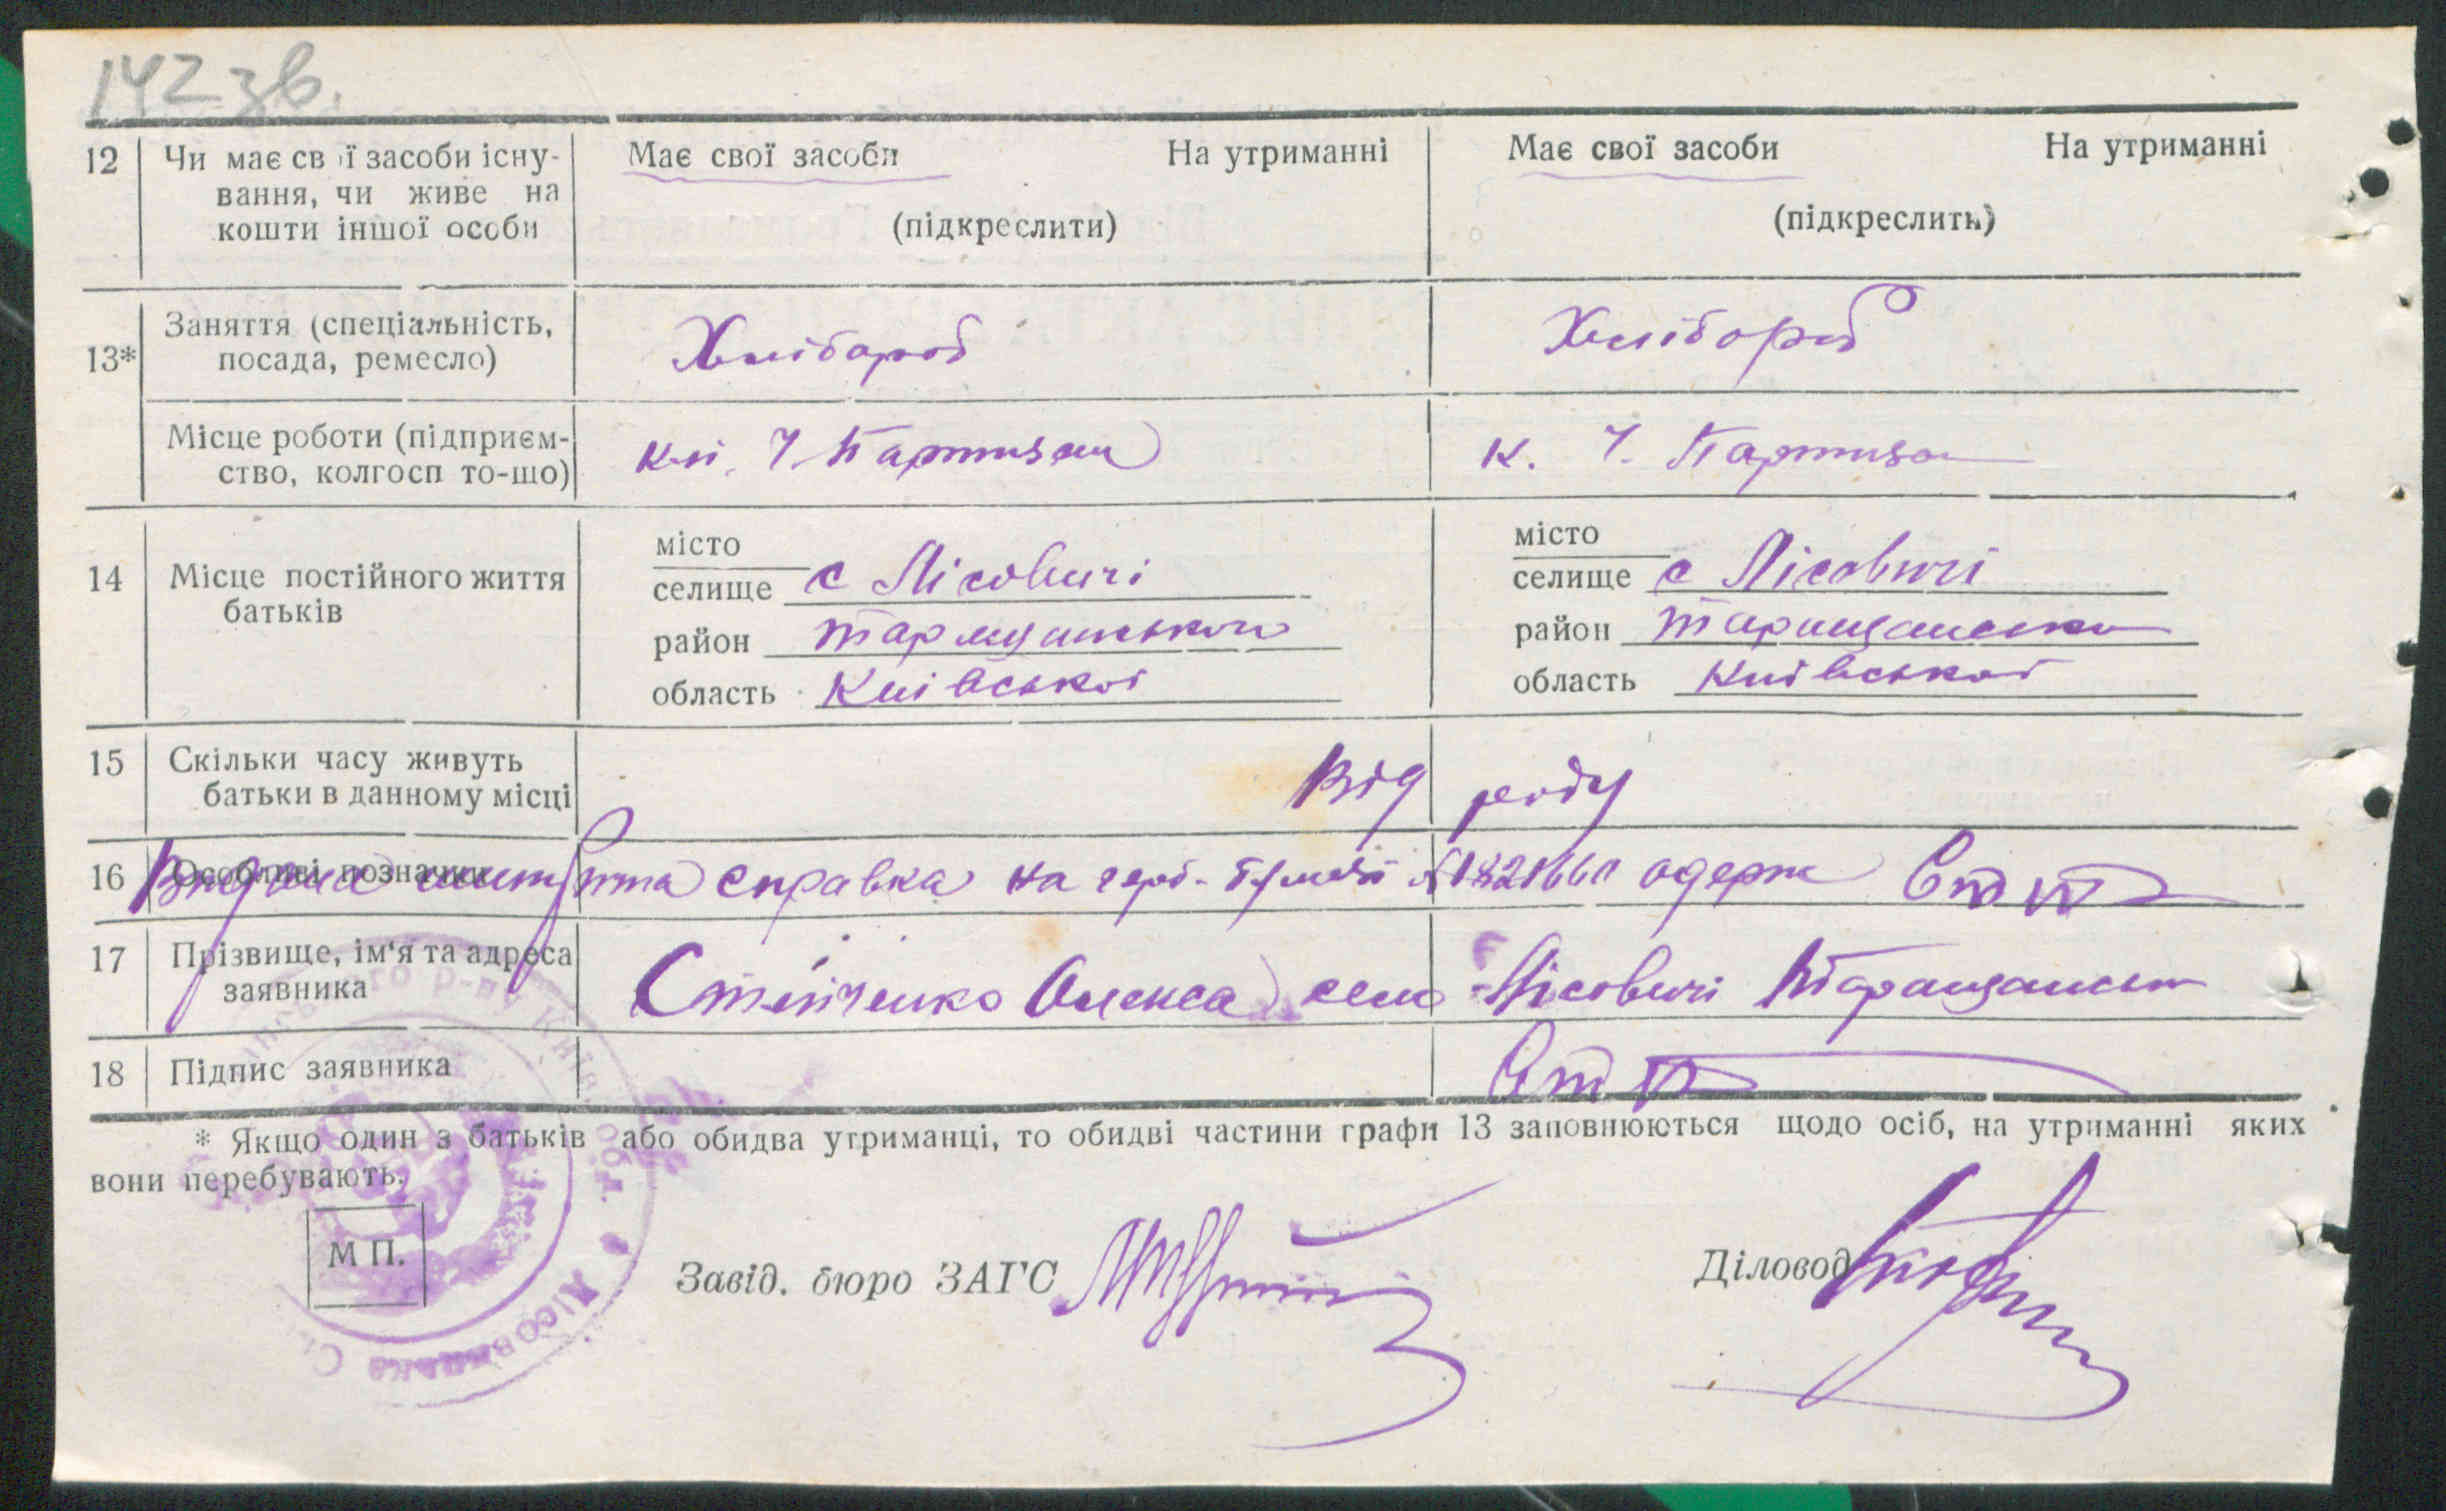 142 зв.
12 Чи має свої засоби існу- Має свої засоби На утриманні Має свої засоби На утриманні
вання, чи живе на
кошти іншої особи (підкреслити) (підкреслить)
13* Заняття (спеціальність, Хлібороб Хлібороб
посада, ремесло)
Місце роботи (підприєм- Ч. Партизан к. Ч. Партизан
ство, колгосп то-що)
14 Місце постійного життя місто місто
батьків селище с Лісовичі селище с Лісовичі
район Таращанського район Таращансько
область Київської область Київської
15 Скільки часу живуть Від роду
батьки в данному місці
16 Особливі позначки Видана справка на герб. бумазі № 1821660 одерж
17 Прізвище, ім'я та адреса Олекса село Лісовичі Таращанськ
заявника
18 Підпис заявника
* Якщо один з батьків або обидва утриманці, то обидві частини графи 13 заповнюються щодо осіб, на утриманні яких
вони перебувають.
М П.
Завід. бюро ЗАГС Діловод